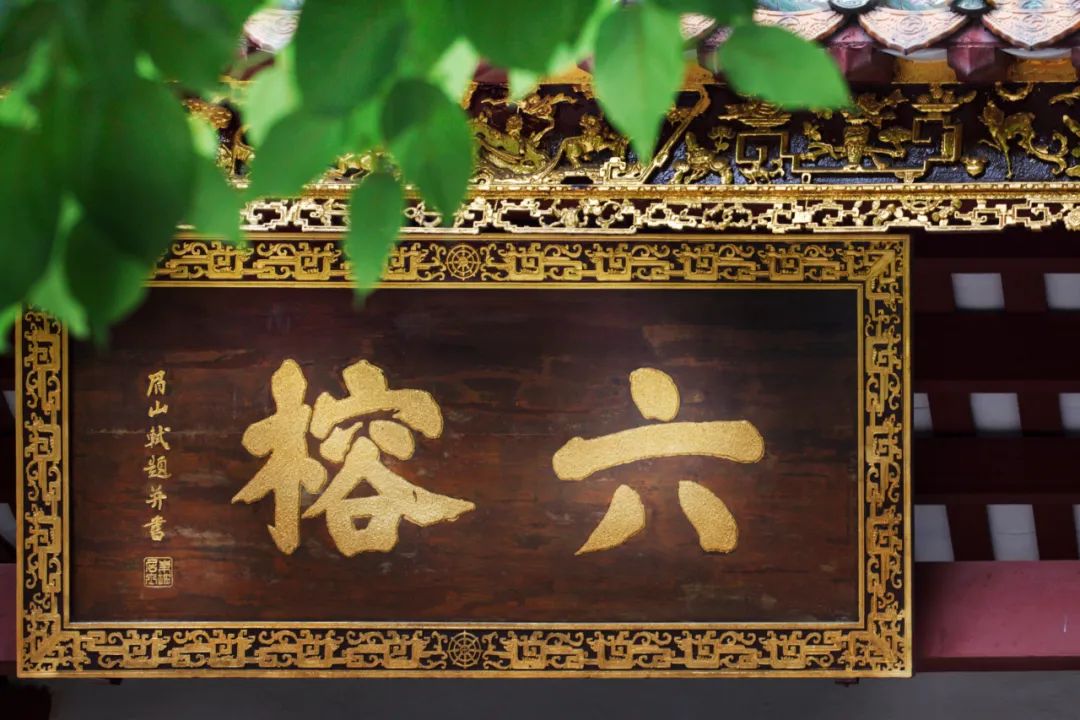 六榕
眉山軾題并書